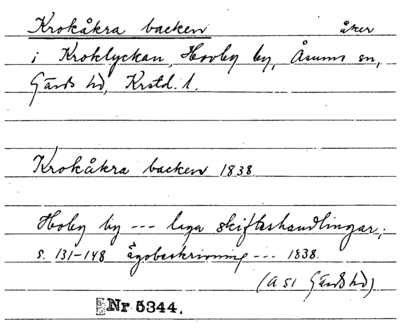 Krokåkra backen åker
i Kroklyckan, Hovby by, Åsums sn,
Gärds hd, Krstd. l.
Krokåkra backen 1838
Hoby by --- laga skifteshandlingar,
s. 131-148 ägobeskrivning --- 1838.
(A 51 Gärds hd)
Nr 5344.